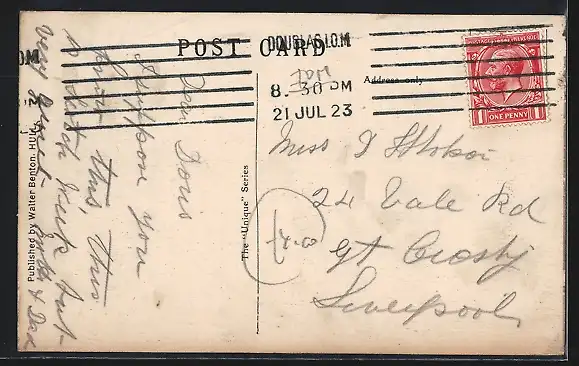 POST CARD
DOUGLAS I.O.M
8. 30 PM
21 JUL 23
IOM
Address only
POSTAGE
ONE PENNY
1
1
Published by Walter Benton, HULL
The "Unique" Series
Dear Doris
I suppose you
know this, this
is
very quiet
& Dad
Miss D
24 Vale Rd
Gt Crosby
Liverpool